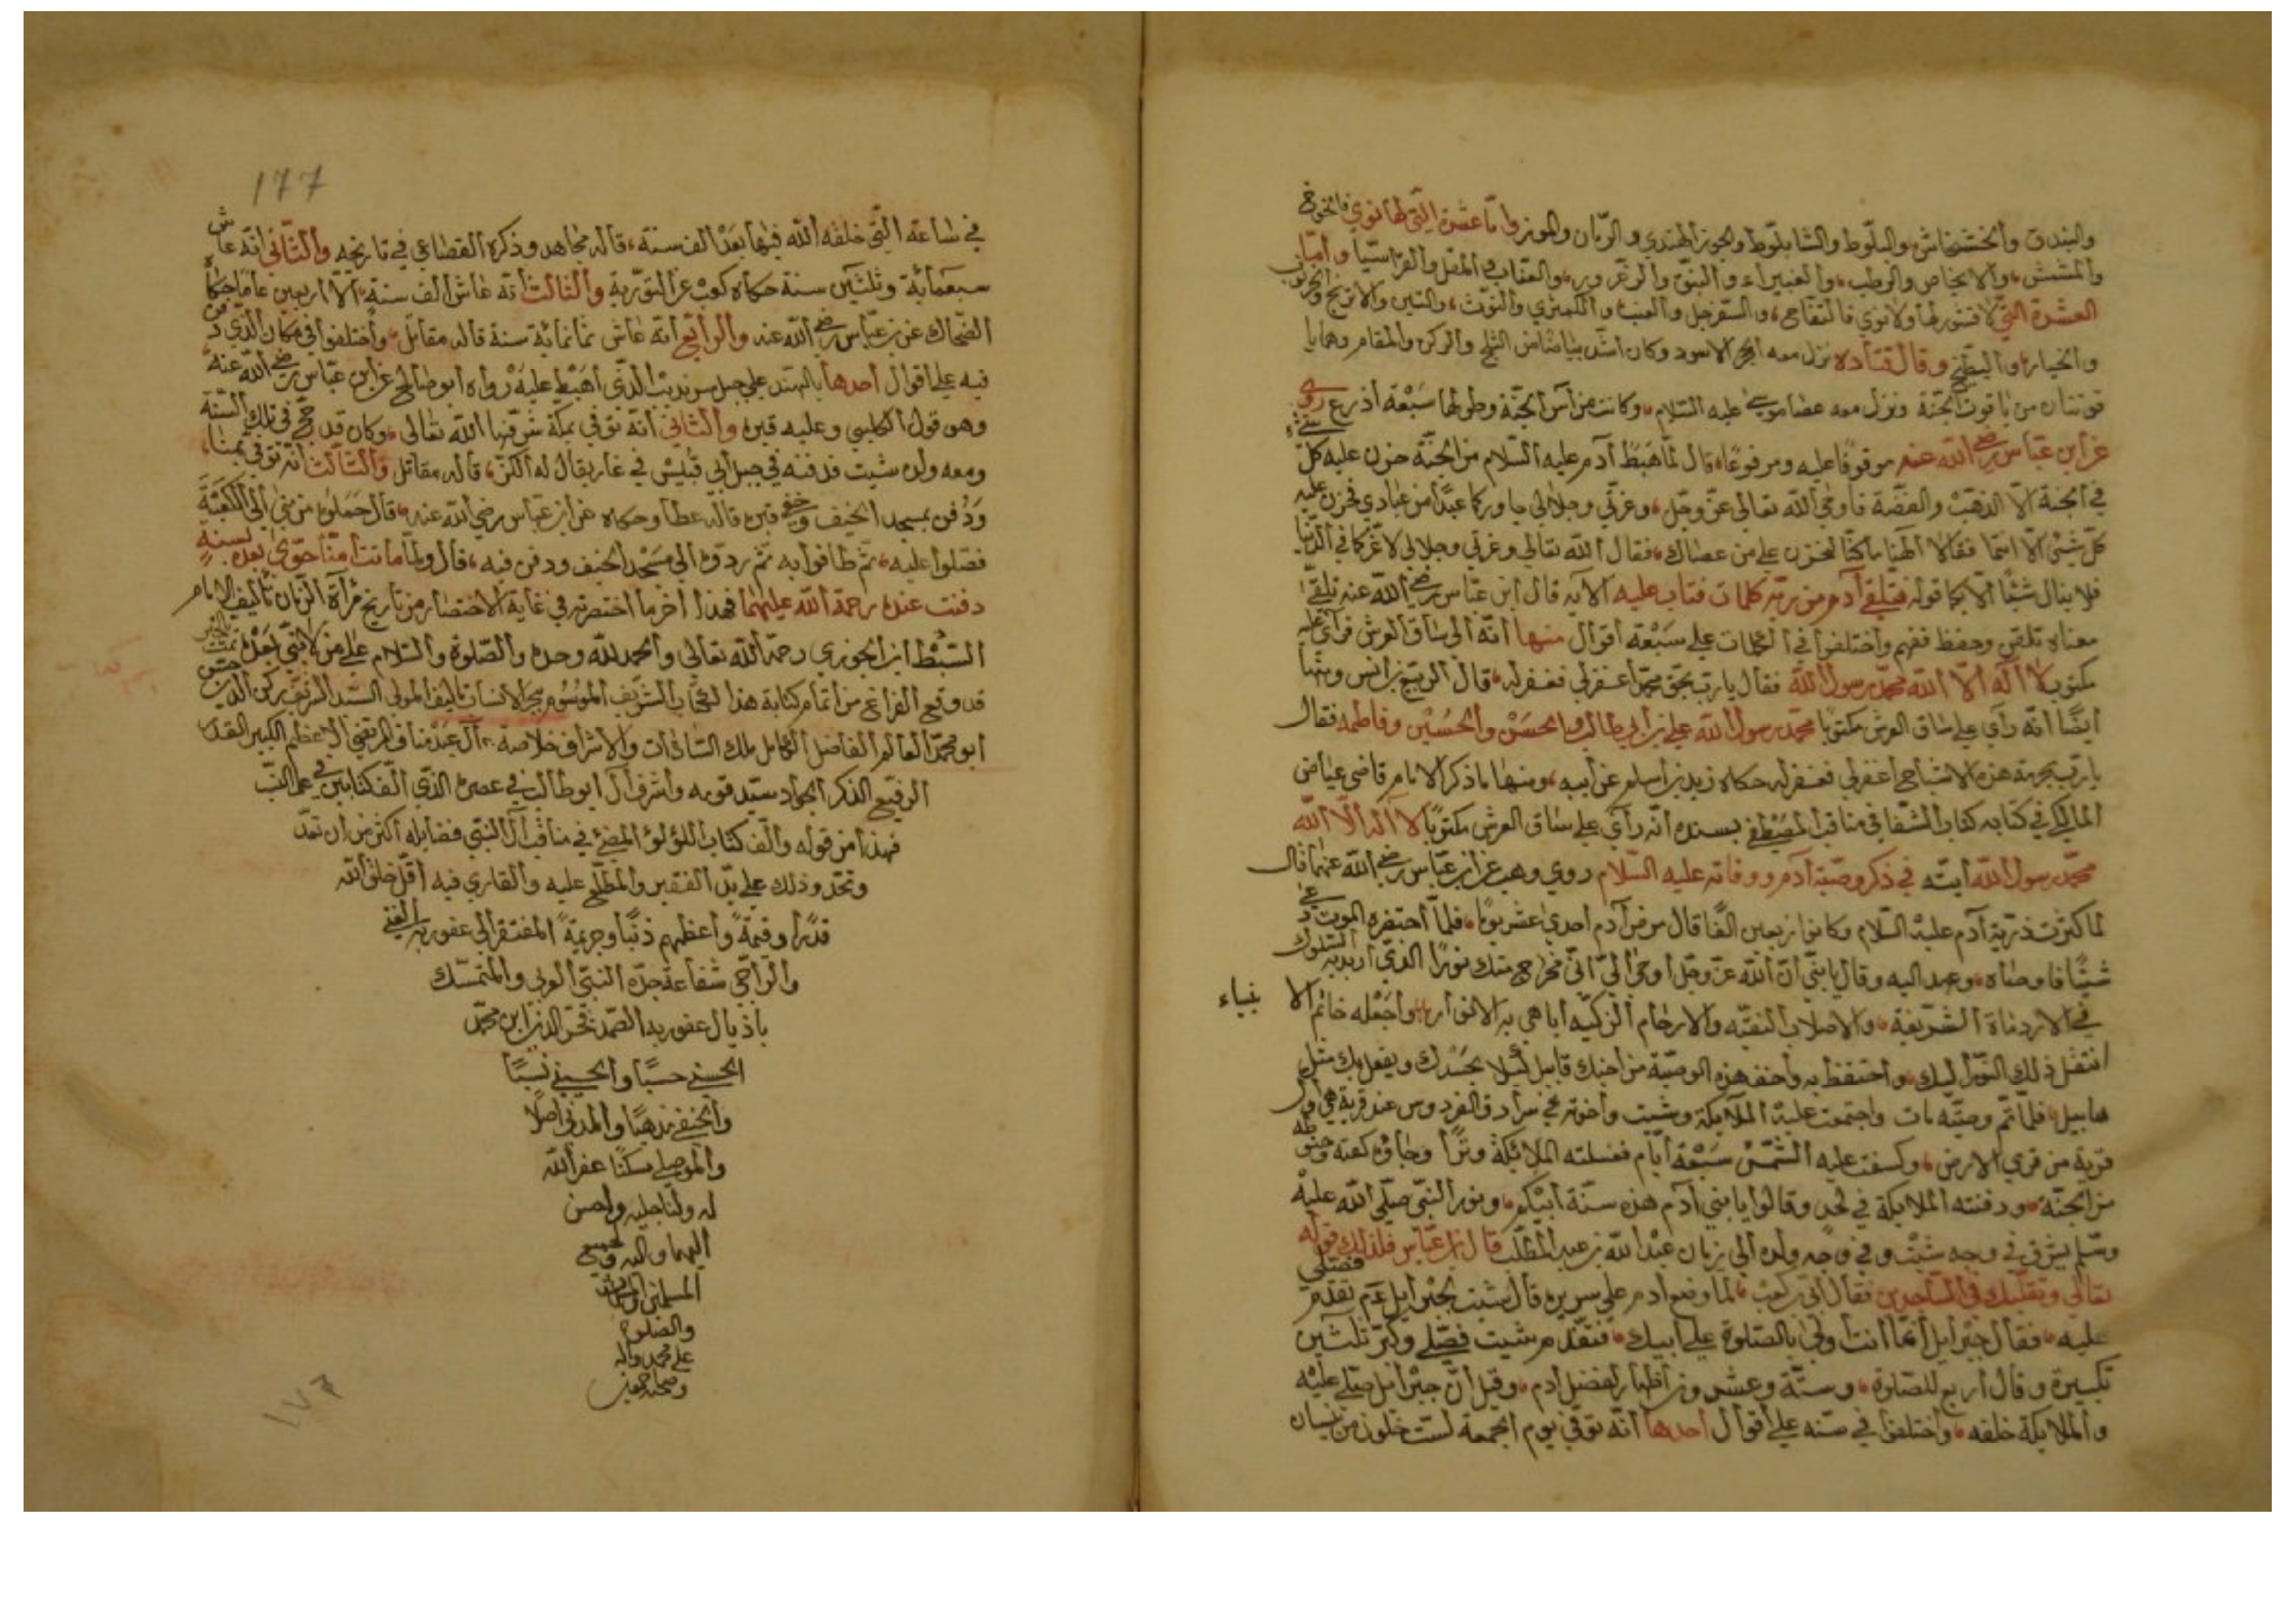 والبندق والخشخاش والبلوط والشابلوط والجوز الهندي والرمان والموز واما عشرة التي لها نوي فالخوخ
والمشمش والاجاص والرطب والغبيراء والنبق والزعرور والعناب والمقل والقراسيا واما
العشرة التي لا قشور لها ولا نوي فالتفاح والسفرجل والعنب والكمثري والتوت والتين والاترنج والخرنوب
والخيار والبطيخ وقال قتادة نزل معه الحجر الاسود وكان اشد بياضا من الثلج والركن والمقام وهما يا
قوتتان من ياقوت الجنة ونزل معه عصا موسى عليه السلام وكانت من آس الجنة وطولها سبعة اذرع روى
عن ابن عباس رضي الله عنه موقوفا عليه ومرفوعا قال لما هبط آدم عليه السلام من الجنة حزن عليه كل شيء
في الجنة الا الذهب والفضة فاوحى الله تعالى عز وجل وعزتي وجلالي جاورتكما عبدا من عبادي فحزن عليه
كل شيء الا انتما فقالا الهنا ما كنا لنحزن على من عصاك فقال الله تعالى وعزتي وجلالي لاعزنكما في الدنيا
فلا ينال شيئا الا بكما قوله فتلقى آدم من ربه كلمات فتاب عليه الآية قال ابن عباس رضي الله عنه تلقى
معناه تلقن وحفظ ففهم واختلفوا في الكلمات على سبعة أقوال منها انه الى ساق العرش فرأى عليه
مكتوب لا اله الا الله محمد رسول الله فقال يا رب بحق محمد اغفر لي فغفر له قال الربيع بن انس ومنها
ايضا انه رأى على ساق العرش مكتوبا محمد رسول الله علي بن ابي طالب والحسن والحسين وفاطمه فقال
يا رب بحرمة هذه الاشباح اغفر لي فغفر له حكاه زيد بن أسلم عن أبيه ومنها ما ذكر الامام قاضي عياض
المالكي في كتابه كتاب الشفا في مناقب المصطفى بسنده انه رأى على ساق العرش مكتوبا لا اله الا الله
محمد رسول الله أيدته في ذكر وصية آدم ووفاته عليه السلام روي وهب عن ابن عباس رضي الله عنهما قال
لما كثرت ذرية آدم عليه السلام وكانوا اربعين الفا قال مرض آدم احدى عشر يوما فلما احتضره الموت دعى
شيثا فاوصاه وعهد اليه وقال يا بني ان الله عز وجل أوحى الي اني مخرج منك نورا الذي اريد به السلوك
في الاردناة الشريفة والاصلاب النقيه والارحام الزكيه أباهي به الانوار واجعله خاتم الا نبياء
انتقل ذلك النور اليك واحتفظ به واخف هذه الوصية من أخيك قابيل لئلا يحسدك ويفعل بك مثل
هابيل فلما تم وصيته مات واجتمعت عليه الملائكة وشيت وأخوته في سرادق الفردوس عند قرية هي اول
قرية من قرى الارض وكسفت عليه الشمس سبعة أيام فغسلته الملائكة وترا وجاؤه كفنه وحنوطه
من الجنة ودفنته الملائكة في لحد وقالوا يا بني آدم هذه سنة أبيكم ونور النبي صلى الله عليه
وسلم يشرق في وجه شيث وفي وجه ولده الى زمان عبد الله بن عبد المطلب قال ابن عباس فلذلك قوله
تعالى وتقلبك في الساجدين فقال أبي بن كعب لما وضع ادم على سريره قال شيث لجبرايل ع م تقدم فصلي
عليه فقال جبرايل انما أنت أولى بالصلوة على أبيك فتقدم شيت فصلى وكبر ثلثين
تكبيرة وقال أربع للصلوة وستة وعشرون اظهارا لفضل ادم وقيل أن جبرايل صلى عليه
والملايكة خلفه واختلفوا في سنه على أقوال أحدها أنه توفي يوم الجمعة لست خلون من نيسان
١٧٧
في ساعة التي خلقه الله فيها بعد الف سنة قاله مجاهد وذكره القضاعي في تاريخه والثاني انه عاش
سبعمائة وثلثين سنة حكاه كعب عن التورية والثالث أنه عاش ألف سنة الا أربعين عاما حكاه
الضحاك عن بن عباس رضي الله عنه والرابع أنه عاش ثمانمائة سنة قاله مقاتل واختلفوا في مكان الذي دفن
فيه على اقوال أحدها بالهند على جبل سرنديب الذي أهبط عليه رواه ابو صالح عن ابن عباس رضي الله عنه
وهو قول الكلبي وعليه قبره والثاني أنه توفي بمكة شرفها الله تعالى وكان قد حج في تلك السنة
ومعه ولده شيت فدفنه في جبل أبي قبيس في غار يقال له الكنز قاله مقاتل والثالث أنه توفي بمنا
ودفن بمسجد الخيف وخفي قبره قاله عطا وحكاه عن ابن عباس رضي الله عنه قال حملوه من منى الى الكعبة
فصلوا عليه ثم طافوا به ثم ردوه الى مسجد الخيف ودفن فيه قال ولما ماتت أمنا حوى بعده بسنة
دفنت عنده رحمة الله عليهما فهذا أخر ما اختصرته في غاية الاختصار من تاريخ مرآة الزمان تأليف الامام
السبط ابن الجوزي رحمه الله تعالى والحمد لله وحده والصلوة والسلام على من لا نبي بعده تمت بالخير
قد وقع الفراغ من اتمام كتابة هذا الكتاب الشريف الموسوم ببحر الانساب تاليف المولى السيد الشريف ركن الدين حسن
ابو محمد العالم الفاضل الكامل ملك السادات والاشراف خلاصة آل عبد مناف المرتضى الاعظم الكبير القدر
الرفيع الذكر الجواد سيد قومه وأشرف آل ابو طالب في عصره الذي ألف كتابين في علم النسب
فهذا من قوله وألف كتاب اللؤلؤ المضئ في مناقب آل النبي فضايله أكثر من ان تعد
وتحد وذلك على يد الفقير والمطلع عليه والقاري فيه أقل خلق الله
قدرا وقيمة وأعظمهم ذنبا وجريمة المفتقر الى عفو ربه الغني
والراجي شفاعة جده النبي العربي والمتمسك
باذيال عفو ربه الصمد فخر الدين ابن محمد
الحسني حسبا والحسيني نسبا
والحنفي مذهبا والمدني اصلا
والموصلي مسكنا غفر الله
له ولنا جليه واحسن
اليهما واليه ولجميع
المسلمين والمسلمات
والصلوة
على محمد واله
وصحبه اجمعين
١٧٦